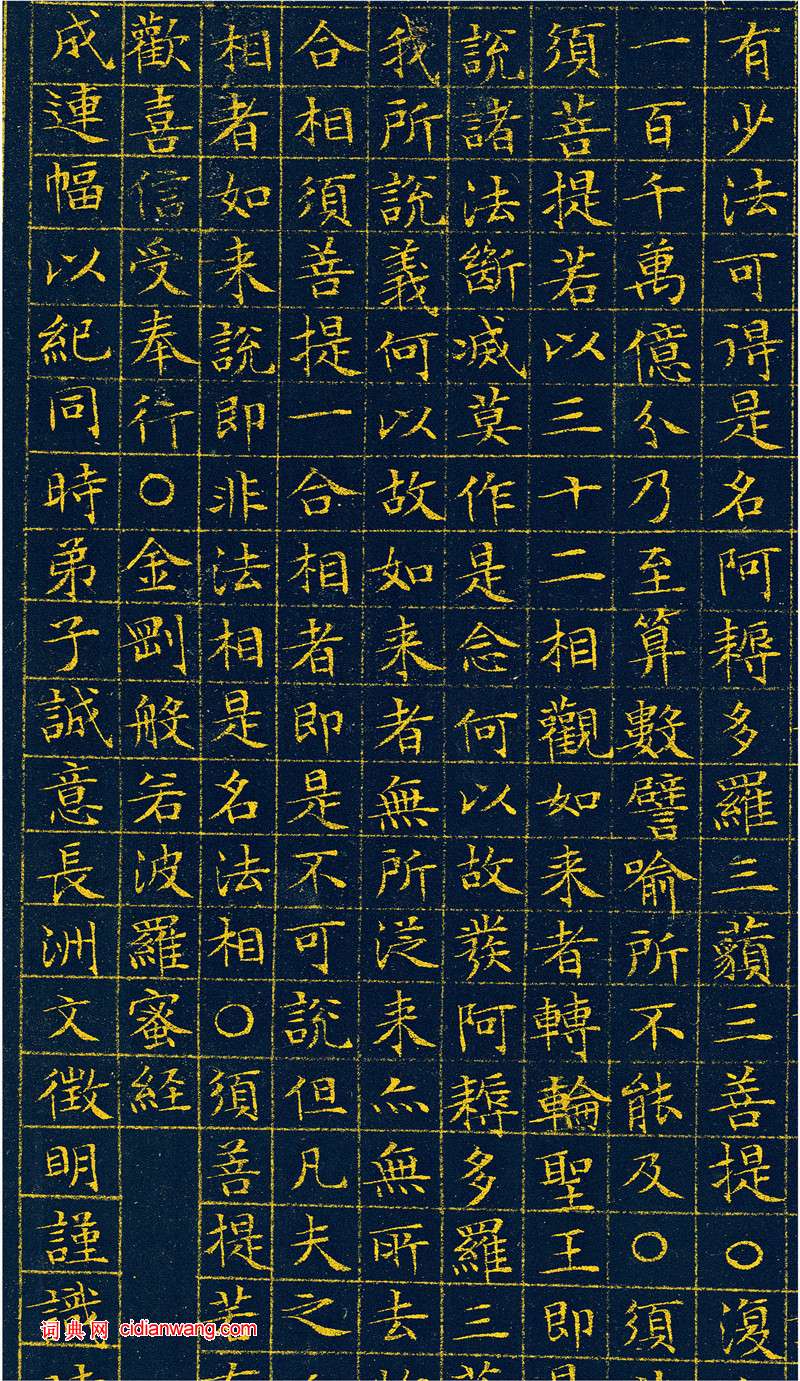 有少法可得是名阿耨多羅三藐三菩提○復
一百千萬億分乃至算數譬喻所不能及○須
須菩提若以三十二相觀如来者轉輪聖王即
說諸法斷滅莫作是念何以故發阿耨多羅三
我所說義何以故如来者無所從来亦無所去
合相須菩提一合相者即是不可說但凡夫之
相者如来說即非法相是名法相○須菩提若
歡喜信受奉行○金剛般若波羅蜜経
成連幅以紀同時弟子誠意長洲文徵明謹識
词典网 cidianwang.com